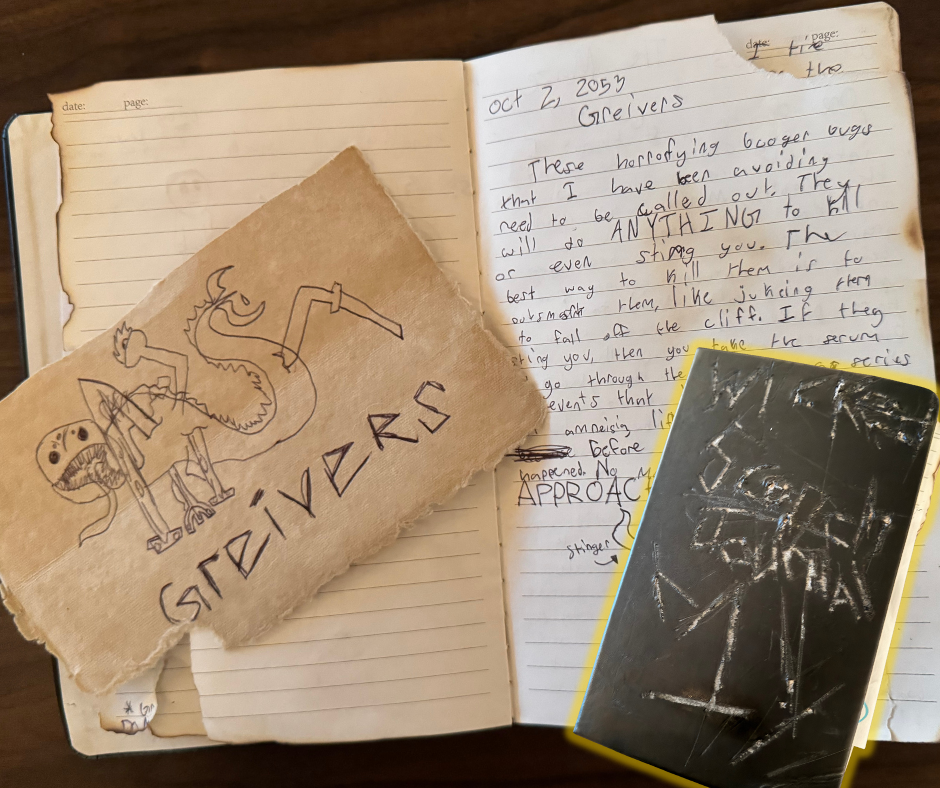 date: page:
date: page:
I
the
Oct 2, 2053
Greivers
These horrofying booger bugs
that I have been avoiding
need to be called out. They
will do ANYTHING to kill
or even sting you. The
best way to kill them is to
outsmart them, like jukeing them
to fall off the cliff. If they
sting you, then you take the serum
go through the series
events that
amneisia lif
before
happened. No
APPROAC
Stinger
GREIVERS
WICKED
IS